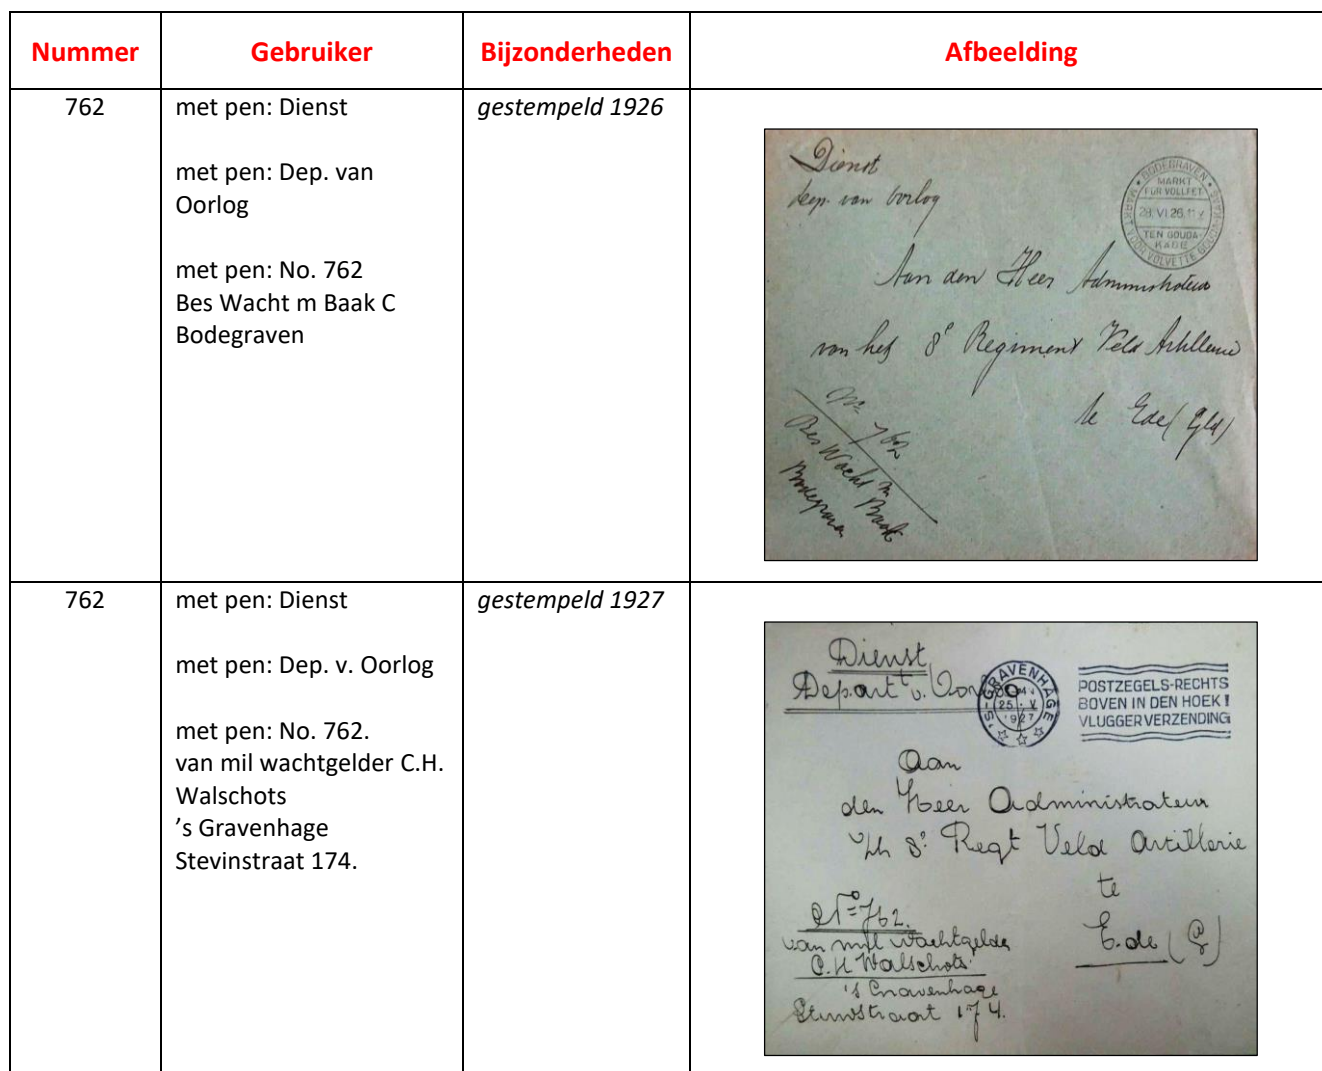 Nummer Gebruiker Bijzonderheden Afbeelding
762
met pen: Dienst
met pen: Dep. van
Oorlog
met pen: No. 762
Bes Wacht m Baak C
Bodegraven
gestempeld 1926
Dienst
Dep. van Oorlog
BODEGRAVEN
MARKT
FÜR VOLLFET
28.VI.26.11 V
TEN GOUDA-
KADE
MARKT VOOR VOLVETTE GOUDAKAAS
Aan den Heer Administrateur
van het 8e Regiment Veld Artillerie
te Ede (Gld)
No 762
Bes Wacht m
Baak
Bodegraven
762
met pen: Dienst
met pen: Dep. v. Oorlog
met pen: No. 762.
van mil wachtgelder C.H.
Walschots
’s Gravenhage
Stevinstraat 174.
gestempeld 1927
Dienst
Depart t v. Oorlog
'S-GRAVENHAGE
25 V
1927
POSTZEGELS-RECHTS
BOVEN IN DEN HOEK!
VLUGGER VERZENDING
Aan
den Heer Administrateur
v/h 8e Regt Veld Artillerie
te
Ede (G)
No 762.
van mil wachtgelder
C.H Walschots
's Gravenhage
Stevinstraat 174.